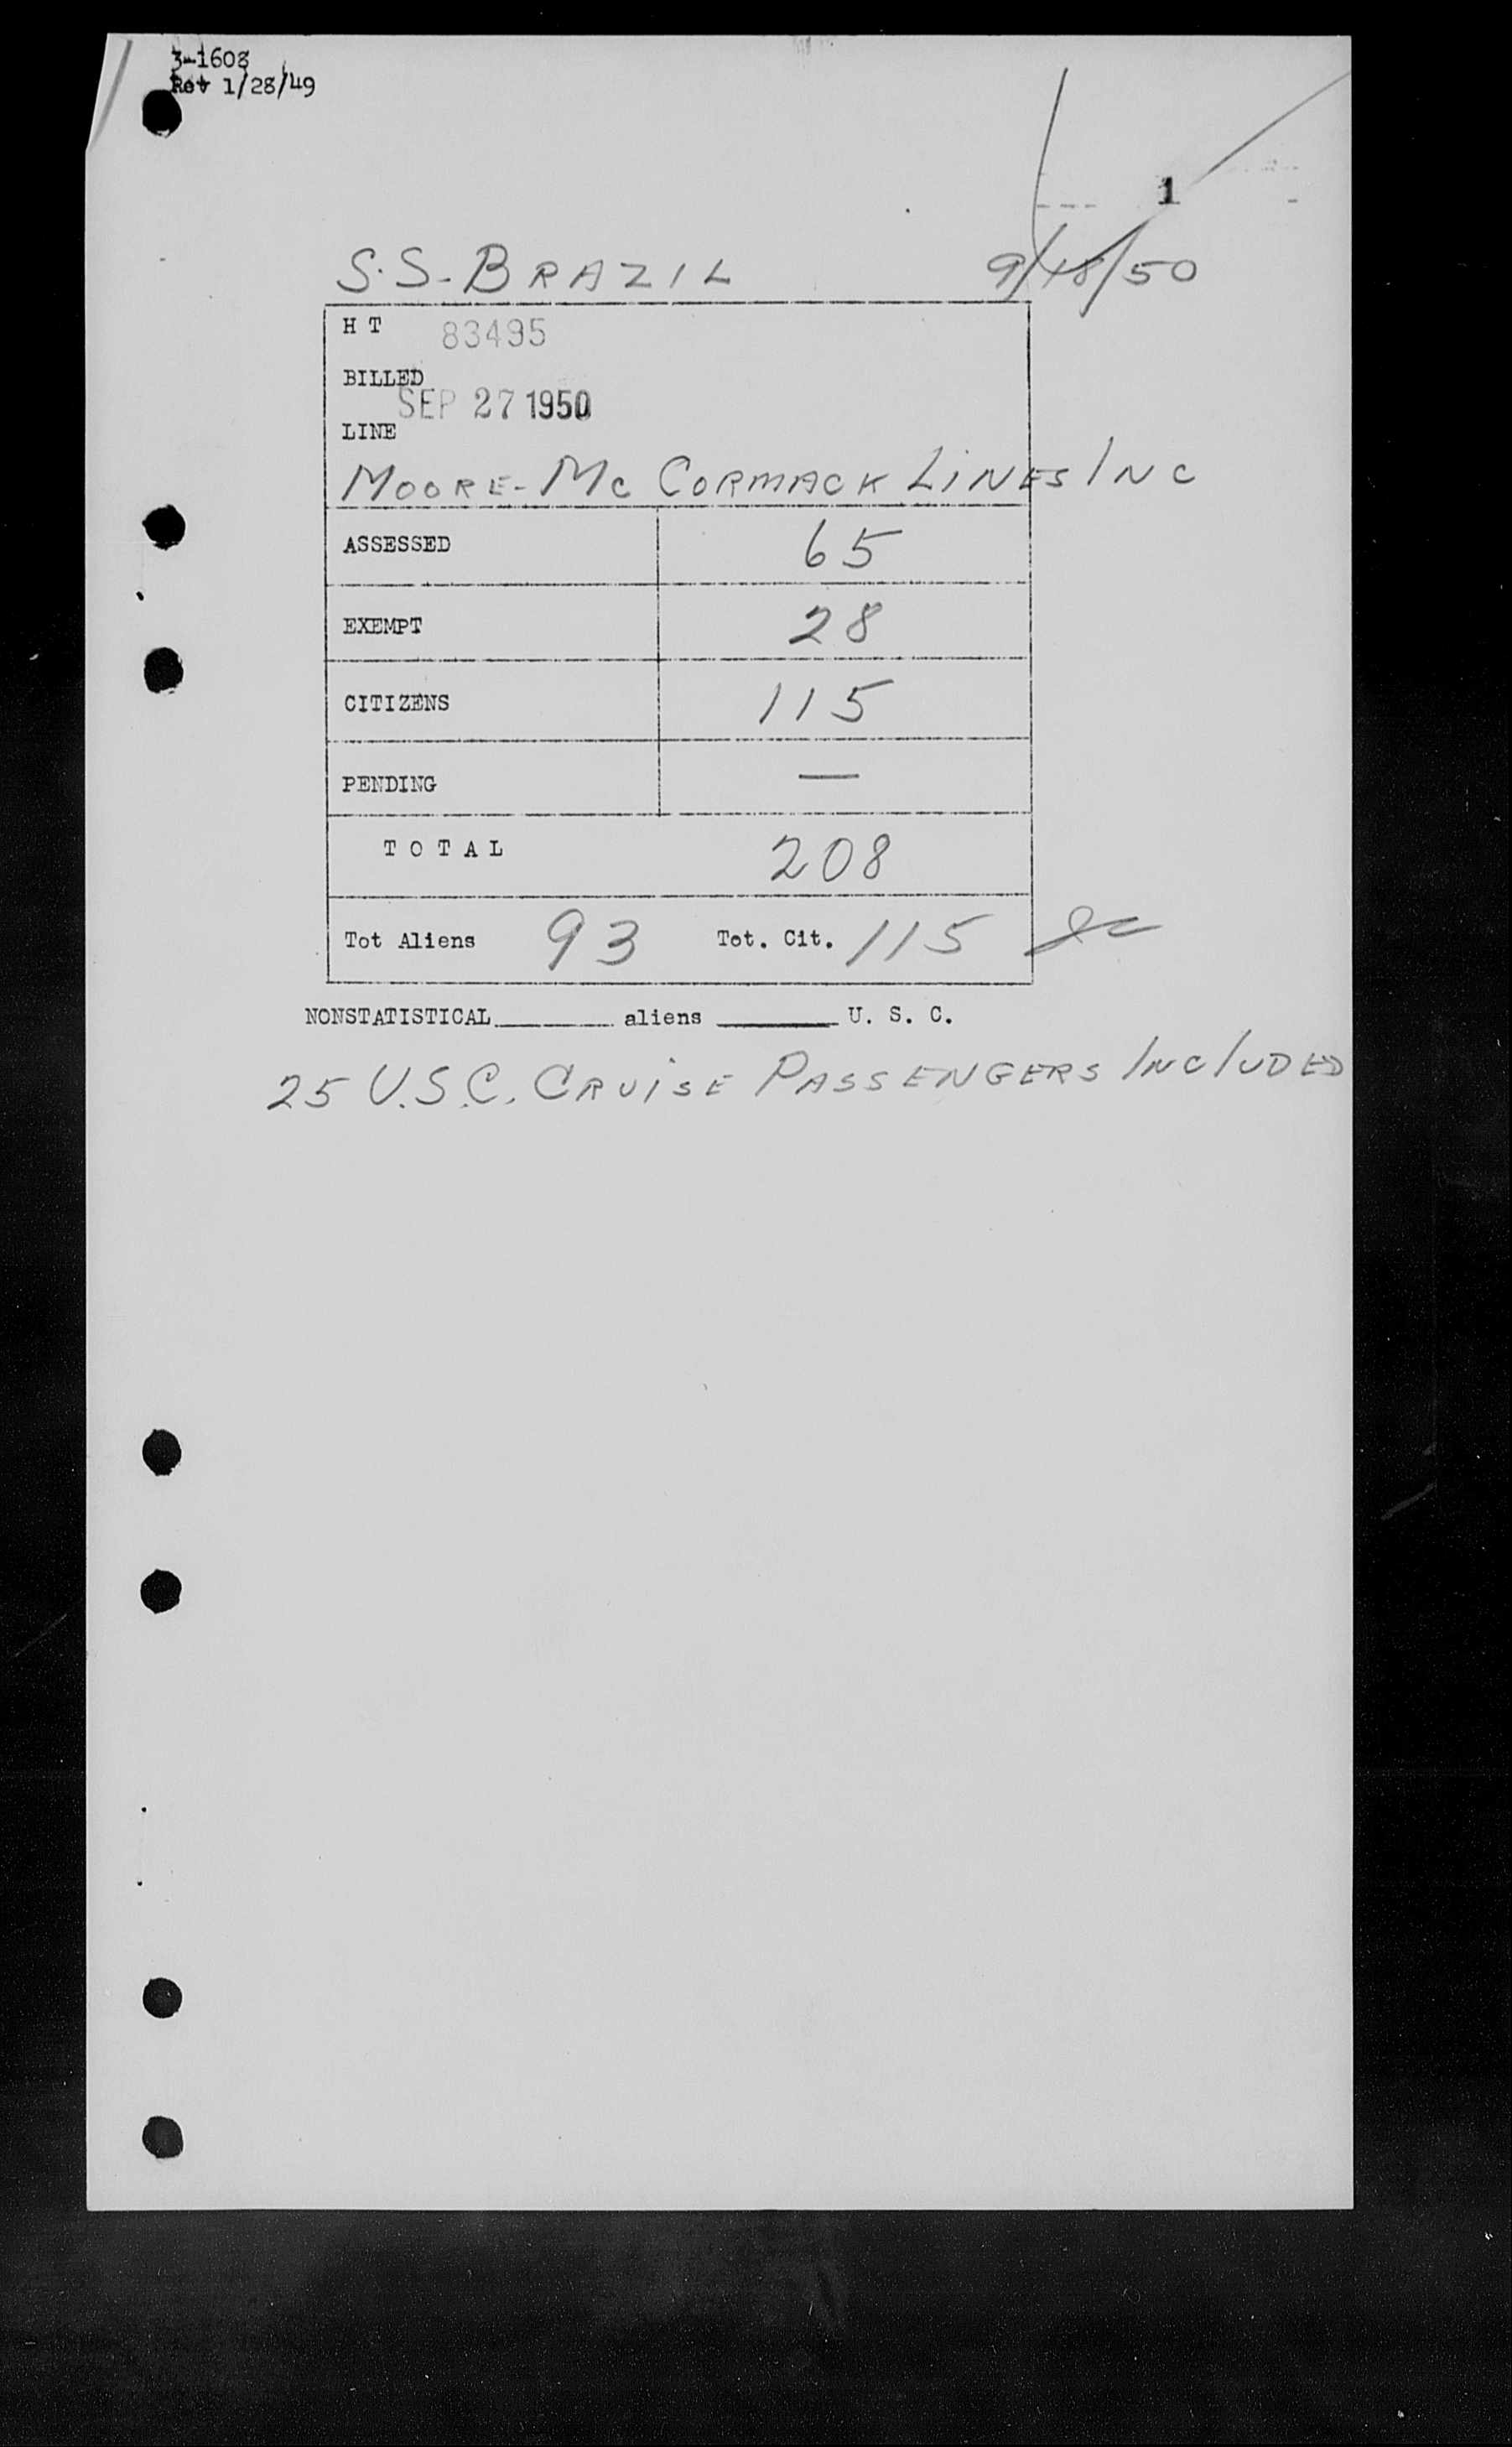 3-1608
Rev 1/28/49
1
S.S. BRAZIL 9/18/50
H T 83495
BILLED
SEP 27 1950
LINE
MOORE-MC CORMACK LINES INC
ASSESSED 65
EXEMPT 28
CITIZENS 115
PENDING —
T O T A L 208
Tot Aliens 93 Tot. Cit. 115
NONSTATISTICAL________ aliens ________ U. S. C.
25 U.S.C. CRUISE PASSENGERS INCLUDED